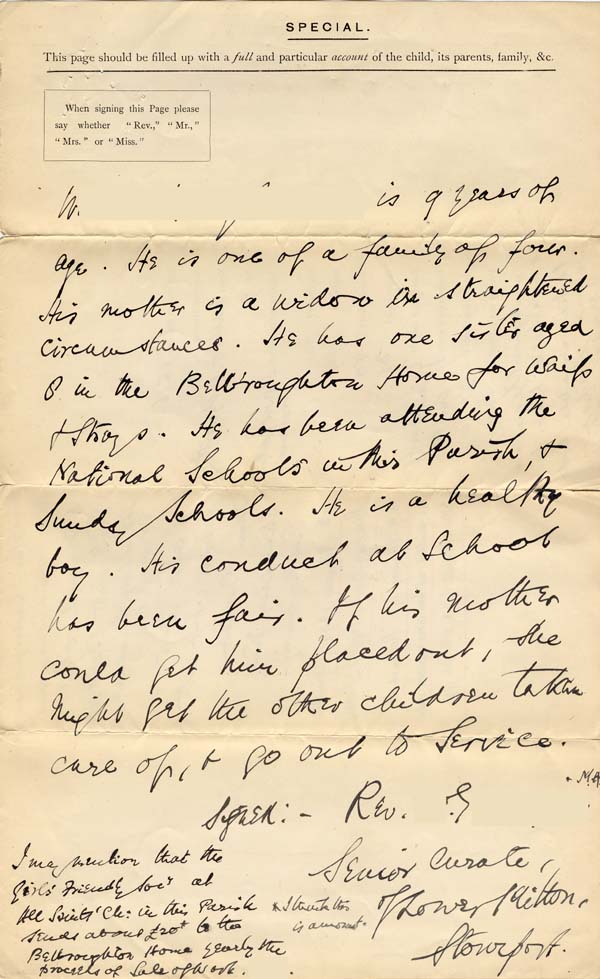 SPECIAL.
This page should be filled up with a full and particular account of the child, its parents, family, &c.
When signing this Page please
say whether "Rev.," "Mr.,"
"Mrs." or "Miss."
W. is 9 years of
age. He is one of a family of four.
His mother is a widow in straightened
circumstances. He has one sister aged
8 in the Bellbroughton Home for Waifs
& Strays. He has been attending the
National Schools in this Parish, &
Sunday Schools. He is a healthy
boy. His conduct at School
has been fair. If his mother
could get him placed out, she
might get the other children taken
care of, & go out to Service.
Signed:- Rev. G M.A.
Senior Curate,
of Lower Mitton,
Stourport.
I may mention that the
Girls' Friendly Socy at
All Saints' Ch: in this Parish
sends about £20* to the
Bellbroughton Home yearly the
proceeds of Sale of Work.
* I think this
is amount.